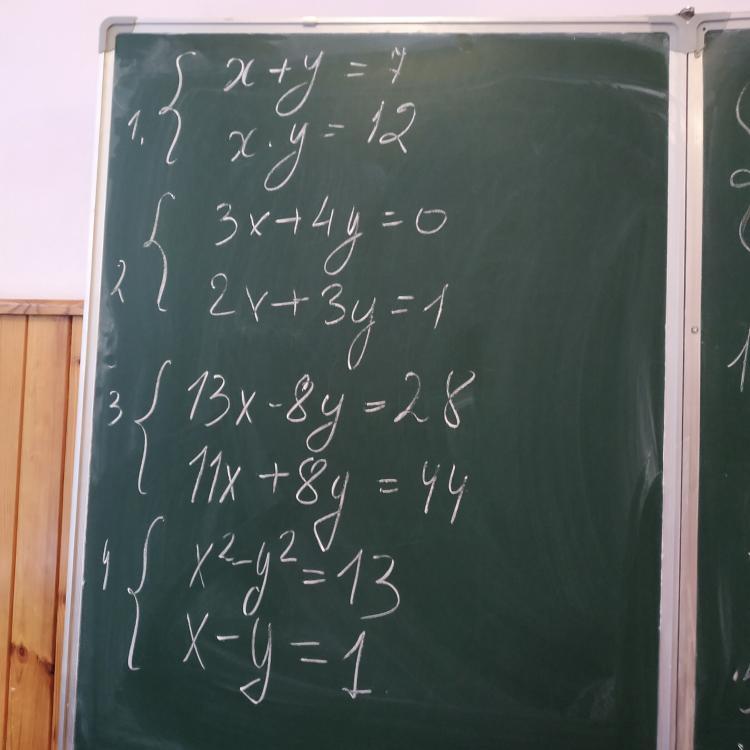 1. { x + y = 7
x · y = 12
2 { 3x + 4y = 0
2x + 3y = 1
3 { 13x - 8y = 28
11x + 8y = 44
4 { x² - y² = 13
x - y = 1